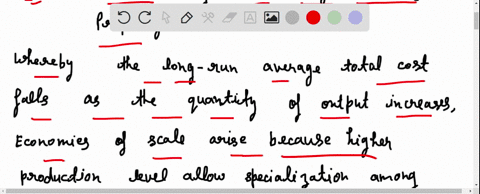 whereby the long-run average total cost
falls as the quantity of output increases,
Economies of scale arise because higher
production level allow specialization among